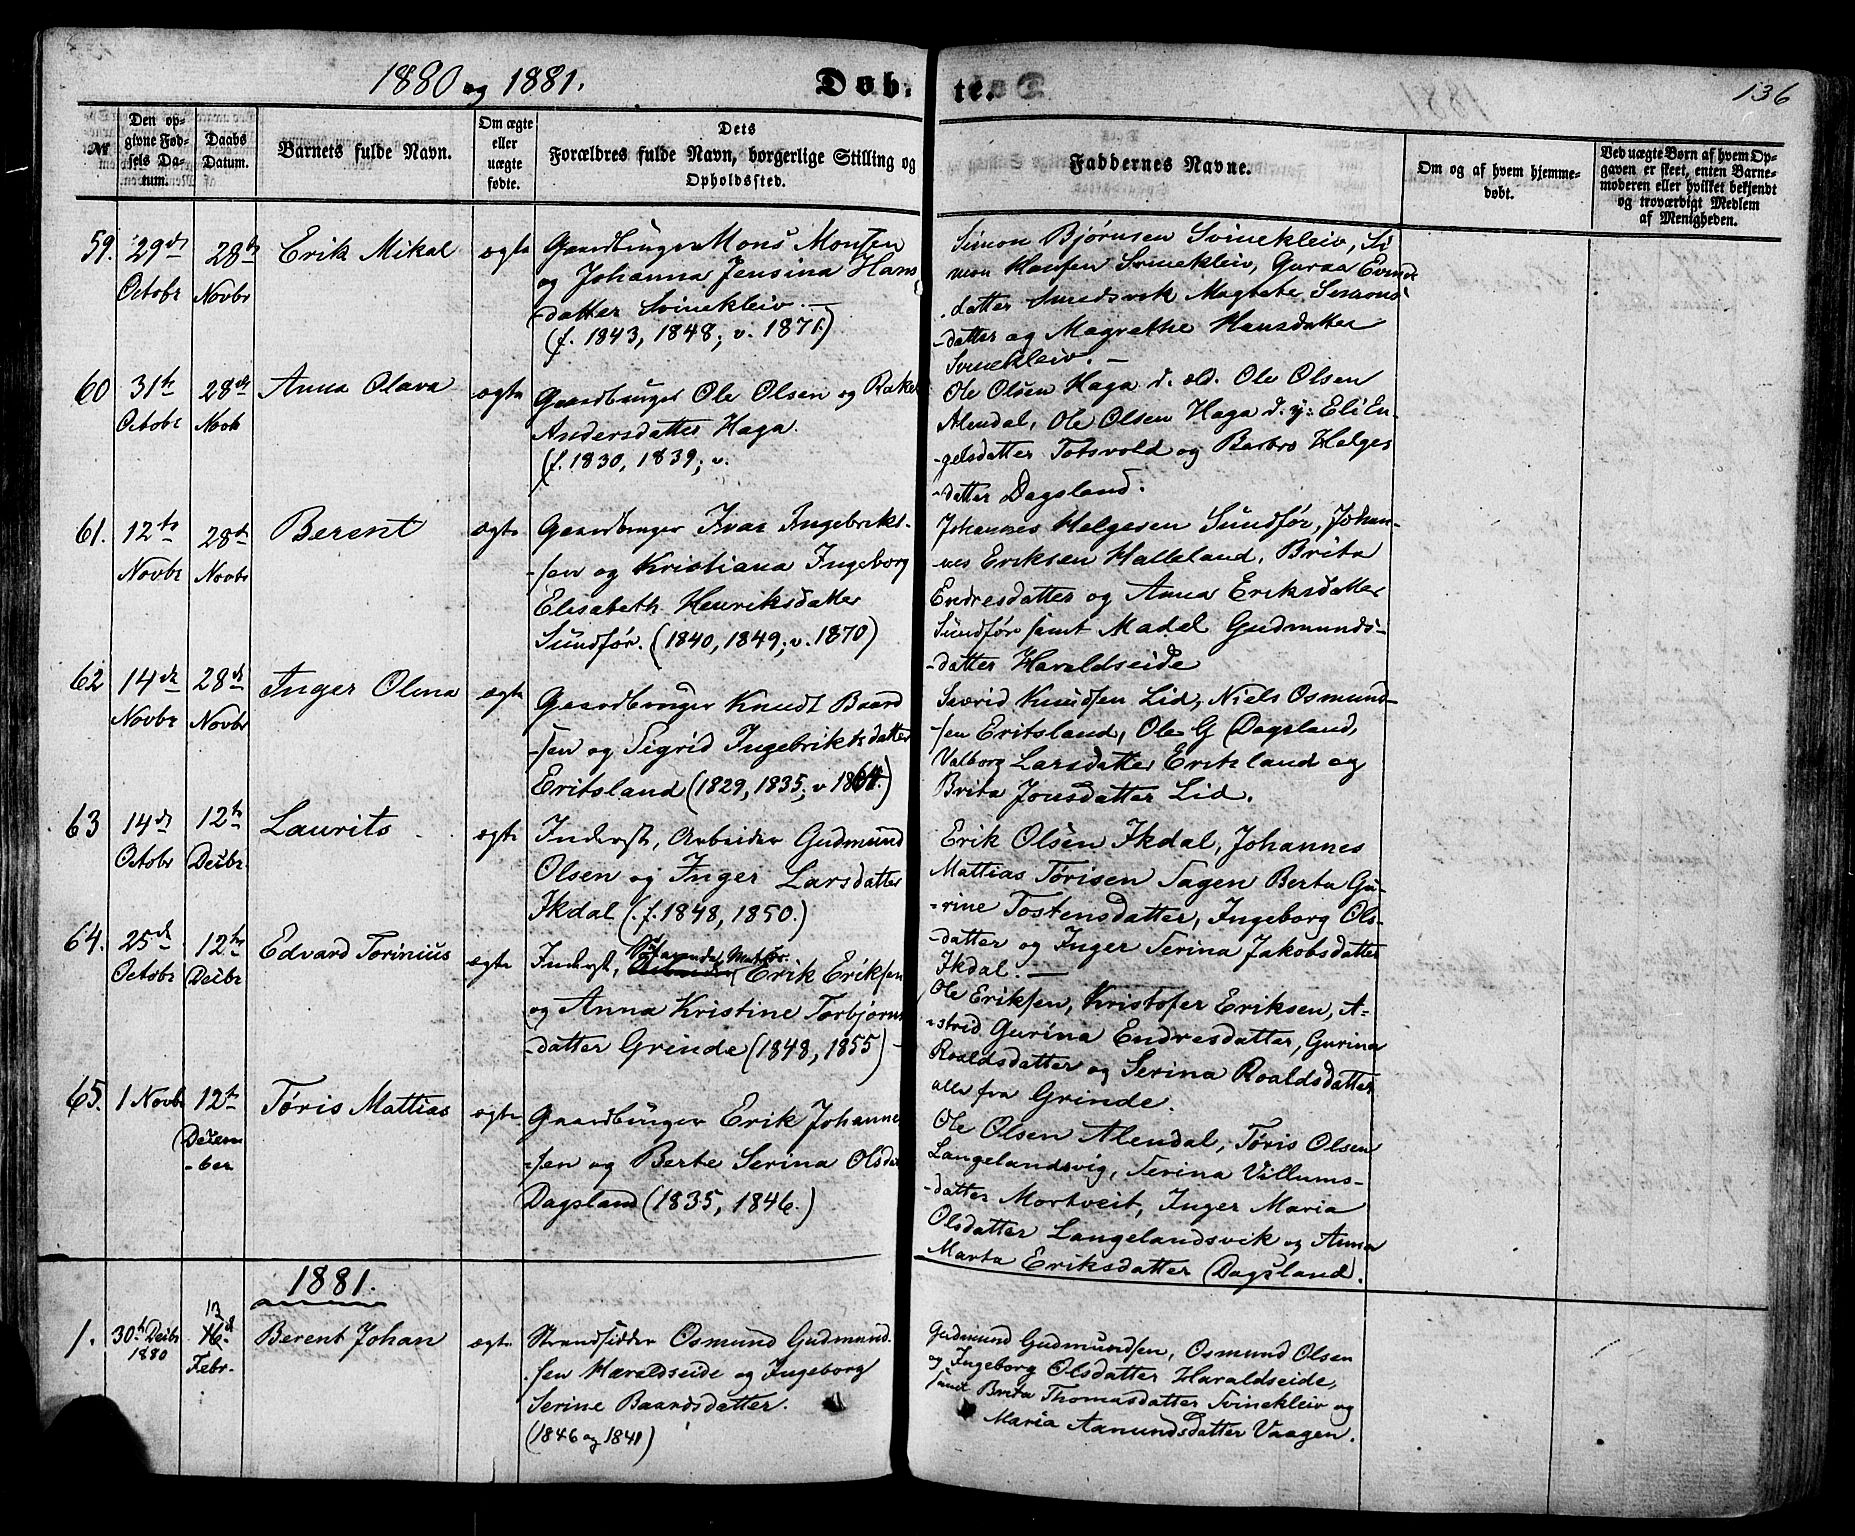 1880 og 1881.
Døbte.
136
№
Den opgivne Fødsels Datum.
Daabs Datum.
Barnets fulde Navn.
Om ægte eller uægte fødte.
Dets Forældres fulde Navn, borgerlige Stilling og Opholdssted.
Faddernes Navne.
Om og af hvem hjemmedøbt.
Ved uægte Børn af hvem Opgaven er skeet, enten Barnemoderen eller hvilket bekjendt og troværdigt Medlem af Menigheden.
59. 29de Octobr 28de Novbr Erik Mikal ægte
Gaardbruger Mons Monsen
og Johanna Jensina Hans
datter Svinekleiv. —
(f. 1843, 1848; v. 1871.)
Simon Bjørnsen Svinekleiv, Si
mon Hansen Svinekleiv, Guroa Evind
datter Smedsvik Magtete Simons-
datter og Magrethe Hansdatter
Svinekleiv. —
60 31te Octobr 28de Novb Anna Olava ægte
Gaardbruger Ole Olsen og Rakel
Andersdatter Haga.
(f. 1830, 1839; v.
Ole Olsen Haga d. æld. Ole Olsen
Alendal, Ole Olsen Haga d. y: Eli En-
-gelsdatter Totsvold og Barbro Helges
-datter Dagsland.
61. 12te Novbr 28de Novbr Berent ægte
Gaardbruger Ivar Ingebrikt-
-sen og Kristiana Ingeborg
Elisabeth Henriksdatter
Sundfør. (1840, 1849; v. 1870)
Johannes Helgesen Sundfør, Johan-
nes Eriksen Halleland, Brita
Endresdatter og Anna Eriksdatter
Sundfør samt Madel Gudmunds-
-datter Haraldseide
62 14de Novbr 28de Novbr Inger Olena ægte
Gaardbruger Knudt Baard
-sen og Sigrid Ingebriktsdatter
Eritsland (1829, 1835; v 1864.)
Sævrid Knudsen Lid, Niels Osmund-
-sen Eritsland, Ole G Dagsland,
Valborg Larsdatter Eritsland og
Brita Jonsdatter Lid.
63 14de Octobr 12te Decbr Laurits ægte
Inderst, Arbeider Gudmund
Olsen og Inger Larsdatter
Ikdal (f. 1848, 1850.)
Erik Olsen Ikdal, Johannes
Mattias Tørisen Sagen Berta Gu-
-rine Tostensdatter, Ingeborg Ols-
-datter og Inger Serina Jakobsdatter
Ikdal. —
64. 25de Octobr 12te Decbr Edvard Torinius ægte
Inderst, Erik Eriksen
og Anna Kristine Torbjørns
-datter Grinde (1848, 1855) -
Ole Eriksen, Kristofer Eriksen, A-
-strid Gurina Endresdatter, Gurina
Roaldsdatter og Serina Roaldsdatter
alle fra Grinde.
65. 1 Novbr 12te Decem-ber Tøris Mattias ægte
Gaardbruger Erik Johanne
-sen og Berte Serina Olsda
Dagsland (1835, 1846.)
Ole Olsen Alendal, Tøris Olsen
Langelandsvig, Serina Villums-
-datter Mortveit, Inger Maria
Olsdatter Langelandsvik og Anna
Marta Eriksdatter Dagsland.
1881.
1. 30te Decbr 1880 13 16de Febr. Berent Johan ægte
Strandsidder Osmund Gudmund
-sen Haraldseide og Ingeborg
Serine Baardsdatter.
(1846 og 1841)
Gudmund Gudmundsen, Osmund Olsen
og Ingeborg Olsdatter Haraldseide,
samt Brita Thomasdatter Svinekleiv og
Maria Aamundsdatter Vaagen.